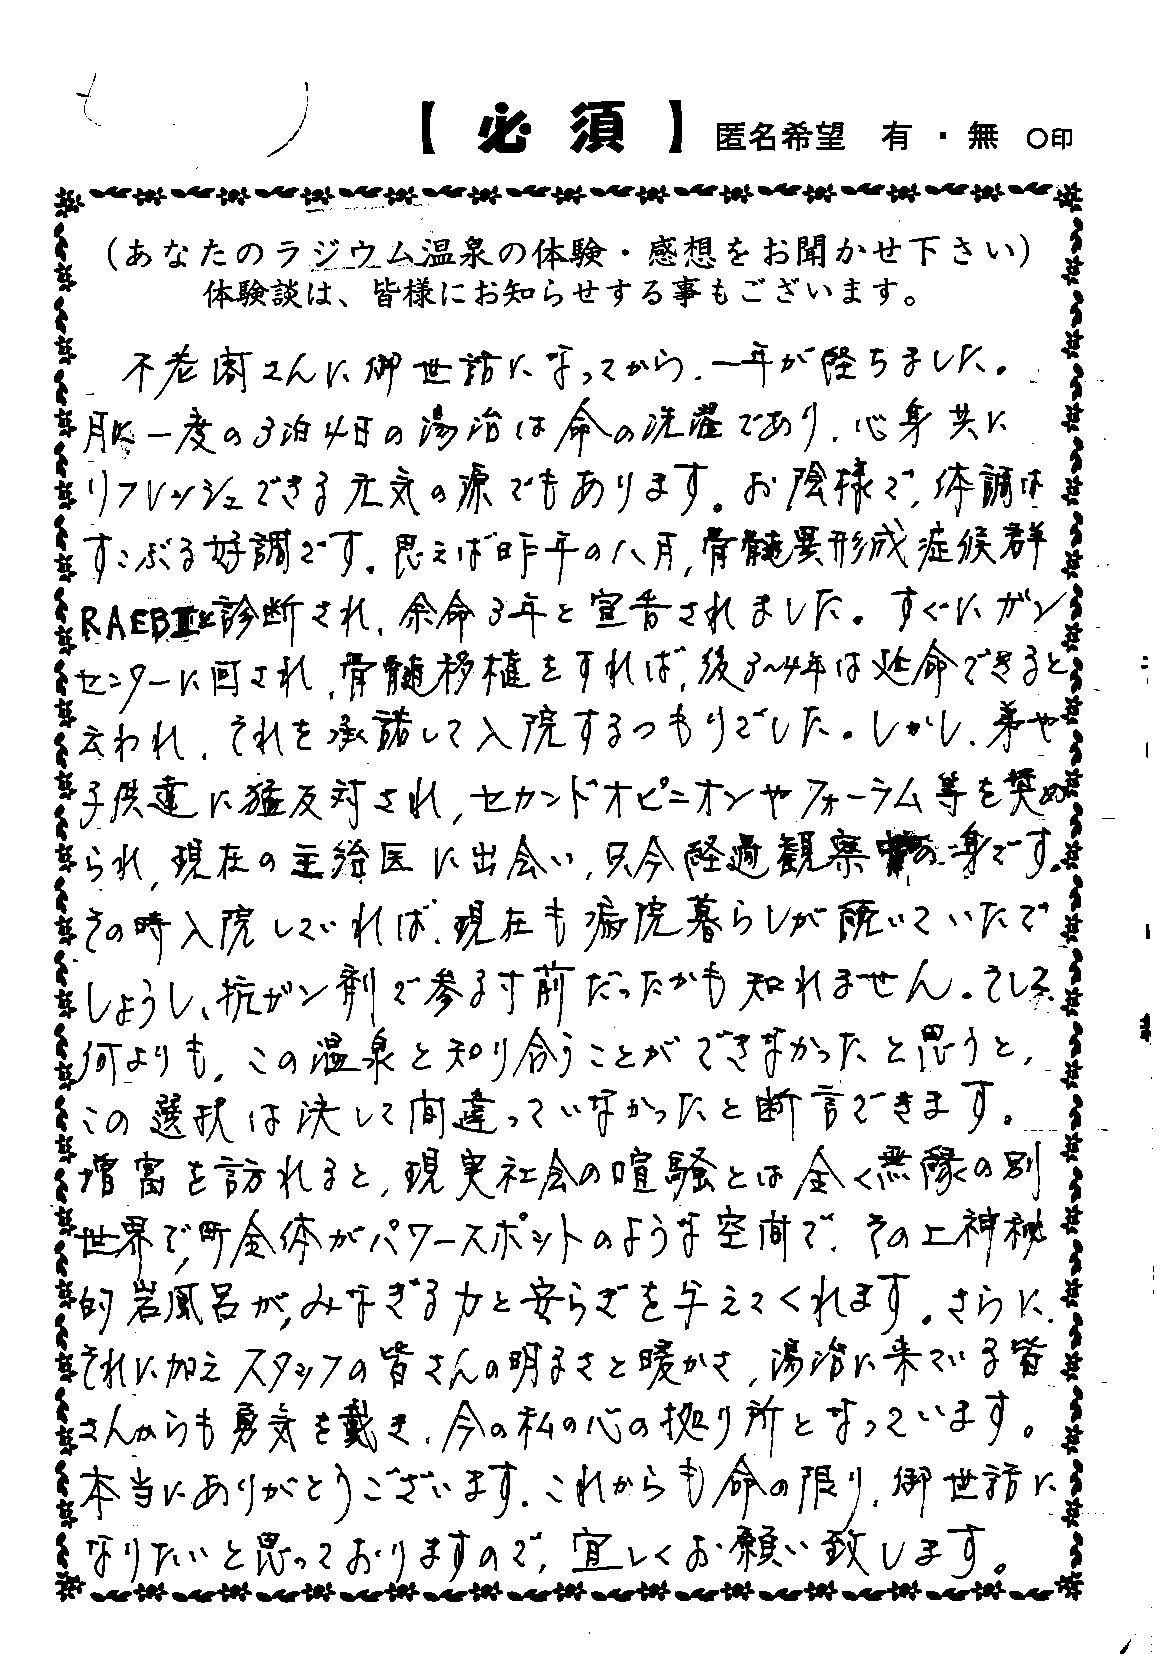 【必須】 匿名希望 有・無 ○印
(あなたのラジウム温泉の体験・感想をお聞かせ下さい)
体験談は、皆様にお知らせする事もございます。
不老閣さんに御世話になってから、一年が経ちました。
月に一度の3泊4日の湯治は命の洗濯であり、心身共に
リフレッシュできる元気の源でもあります。お陰様で、体調は
すこぶる好調です。思えば昨年の八月、骨髄異形成症候群
RAEBⅡと診断され、余命3年と宣告されました。すぐにガン
センターに回され、骨髄移植をすれば、後3〜4年は延命できると
云われ、それを承諾して入院するつもりでした。しかし、弟や
子供達に猛反対され、セカンドオピニオンやフォーラム等を奨め
られ、現在の主治医に出会い、只今経過観察中の身です。
その時入院していれば、現在も病院暮らしが続いていたで
しょうし、抗ガン剤で参る寸前だったかも知れません。そして
何よりも、この温泉と知り合うことができなかったと思うと、
この選択は決して間違っていなかったと断言できます。
増富を訪れると、現実社会の喧騒とは全く無縁の別
世界で、町全体がパワースポットのような空間で、その上神秘
的岩風呂が、みなぎる力と安らぎを与えてくれます。さらに、
それに加えスタッフの皆さんの明るさと暖かさ、湯治に来ている皆
さんからも勇気を戴き、今の私の心の拠り所となっています。
本当にありがとうございます。これからも命の限り、御世話に
なりたいと思っておりますので、宜しくお願い致します。